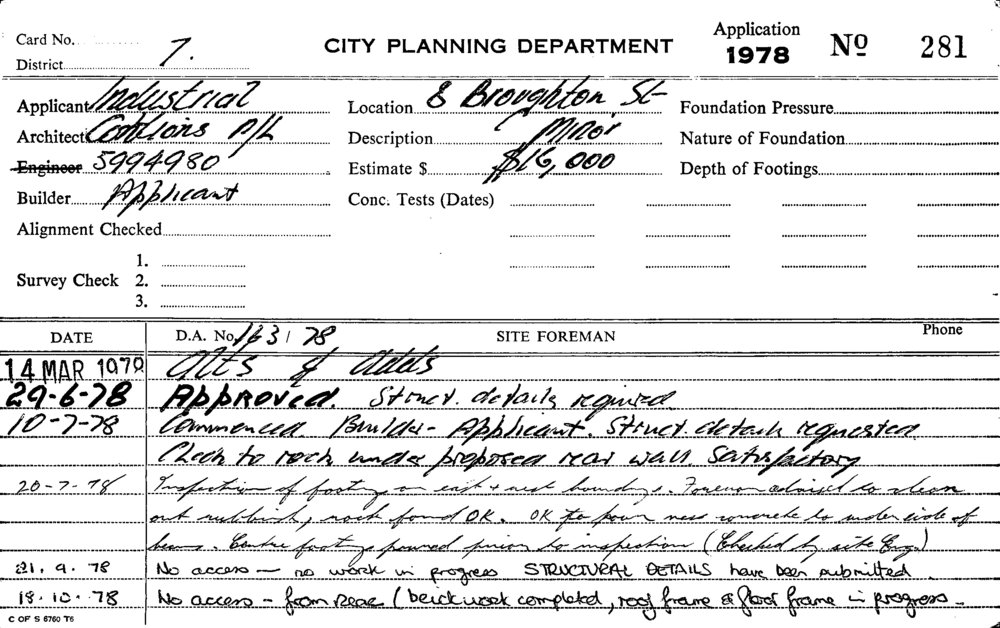 Card No.
District 7.
CITY PLANNING DEPARTMENT
Application
1978
Nº 281
Applicant Industrial
Architect P/L
Engineer 5994980
Builder Applicant
Alignment Checked
Survey Check
1.
2.
3.
Location 8 Broughton St
Description Minor
Estimate $ $16,000
Conc. Tests (Dates)
Foundation Pressure
Nature of Foundation
Depth of Footings
DATE D.A. No. 163/78 SITE FOREMAN Phone
14 MAR 1978 Alts & Adds
29-6-78 Approved. Struct. details required
10-7-78 Commenced. Builder - Applicant. Struct. details requested
to rock under proposed rear wall. Satisfactory
20-7-78 Inspection of footing on east & west boundys. Foreman advised to clean
out rubbish, rock found OK. OK to pour mass concrete to under side of
beams. Centre footings poured prior to inspection (Checked by site Eng.)
21.9.78 No access — no work in progress STRUCTURAL DETAILS have been submitted.
18.10.78 No access - from rear (brickwork completed, roof frame & floor frame in progress.
C OF S 6760 T6